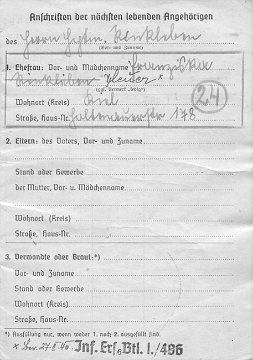 Anschriften der nächsten lebenden Angehörigen
des Herrn Hptm.
(Vor- und Zuname)
1. Ehefrau: Vor- und Mädchenname Franziska
geb. Heider*
(ggf. Vermerk „ledig")
Wohnort (Kreis) Kiel
Straße, Haus-Nr. Holtenauerstr 178
24
2. Eltern: des Vaters, Vor- und Zuname
Stand oder Gewerbe
der Mutter, Vor- u. Mädchenname
Wohnort (Kreis)
Straße, Haus-Nr.
3. Verwandte oder Braut:*)
Vor- und Zuname
Stand oder Gewerbe
Wohnort (Kreis)
Straße, Haus-Nr.
*) Ausfüllung nur, wenn weder 1. noch 2. ausgefüllt sind.
Inf. Ers. Btl. I./486